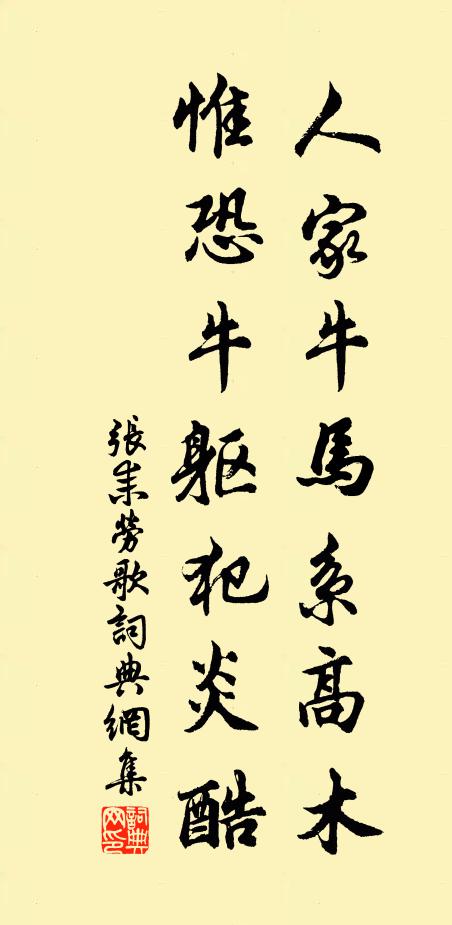 人家牛馬系高木
惟恐牛軀犯炎酷
張耒勞歌詞典網集
詞典网印